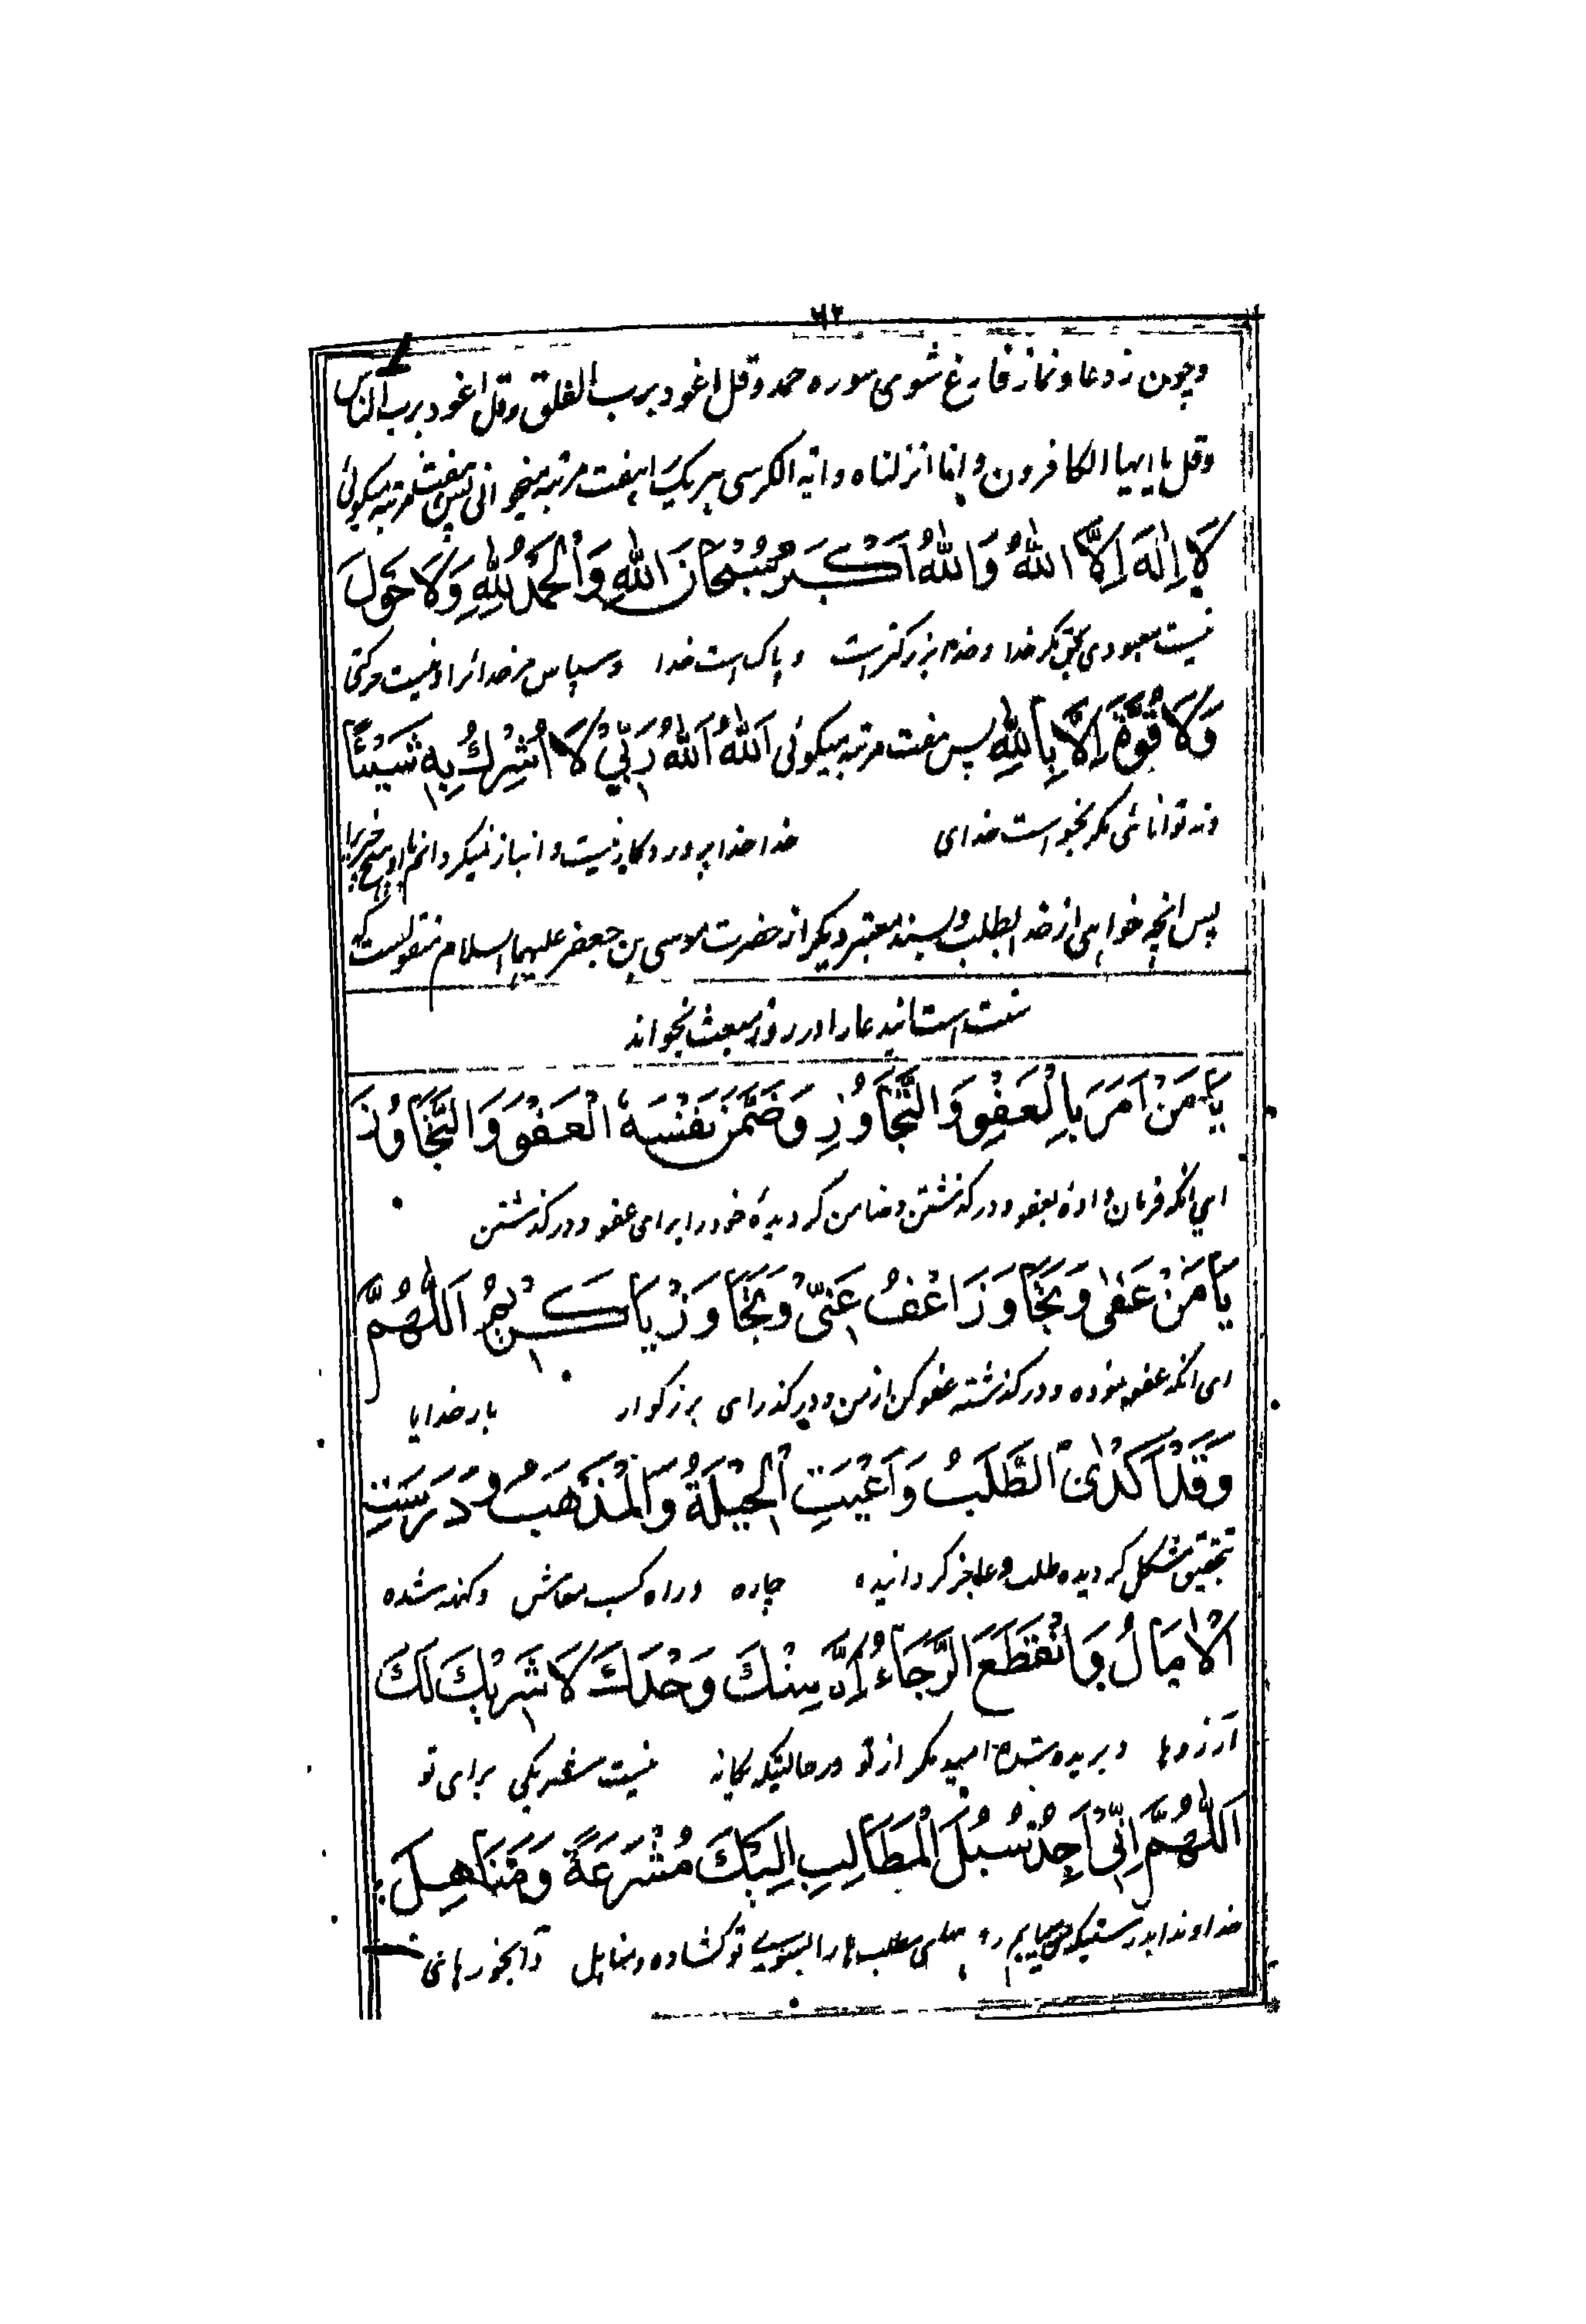 ۶۲
وچون از دعا و نماز فارغ شوی سوره حمد و قل اعوذ برب الفلق و قل اعوذ برب الناس
و قل یا ایها الکافرون و انا انزلناه و ایه الکرسی هر یک را هفت مرتبه میخوانی پس هفت مرتبه میکوئی
لَا اِلٰهَ اِلَّا اللّٰهُ وَاللّٰهُ اَكْبَرُ سُبْحَانَ اللّٰهِ وَالْحَمْدُ لِلّٰهِ وَلَا حَوْلَ
نیست معبودی بحق مکر خدا و خدا بزرکتراست و پاک است خدا و سپاس مر خدائرا و نیست حرکتی
وَلَا قُوَّةَ اِلَّا بِاللّٰهِ پس هفت مرتبه میکوئی اَللّٰهُ اَللّٰهُ رَبِّيْ لَا اُشْرِكُ بِهٖ شَيْئًا
و نه توانائی مکر بخواست خدای خدا خدا پروردکار نیست و انباز نمیکردانم باو هیچ چیزیرا
پس انچه خواهی از خدا بطلب و بسند معتبر دیکر از حضرت موسی بن جعفر علیهما السلام منقولست که
سنت است ایندعا را در روز مبعث بخواند
يَا مَنْ اَمَرَ بِالْعَفْوِ وَالتَّجَاوُزِ وَضَمَّنَ نَفْسَهُ الْعَفْوَ وَالتَّجَاوُزَ
ای انکه فرمان داده بعفو و درکذشتن و ضامن کردیدهٔ خود را برای عفو و درکذشتن
يَا مَنْ عَفٰى وَتَجَاوَزَ اعْفُ عَنِّيْ وَتَجَاوَزْ يَا كَرِيْمُ اَللّٰهُمَّ
ای انکه عفو نموده و درکذشته عفو کن از من و درکذر ای بزرکوار بار خدایا
وَقَدْ اَكْدَى الطَّلَبُ وَاَعْيَتِ الْحِيْلَةُ وَالْمَذْهَبُ وَدَرَسَتِ
بتحقیق مشکل کردیده طلب و عاجز کردانیده چاره و راه کسب معاش و کهنه شده
الْاٰمَالُ وَانْقَطَعَ الرَّجَاءُ اِلَّا مِنْكَ وَحْدَكَ لَا شَرِيْكَ لَكَ
آرزوها و بریده شده امید مکر از تو در حالتیکه یکانه نیست شریکی برای تو
اَللّٰهُمَّ اِنِّيْ اَجِدُ سُبُلَ الْمَطَالِبِ اِلَيْكَ مُشْرَعَةً وَمَنَاهِلَ
خداوندا بدرستیکه می یابم راههای مطلب ها را بسوی تو کشاده و مناهل و آبخورهای